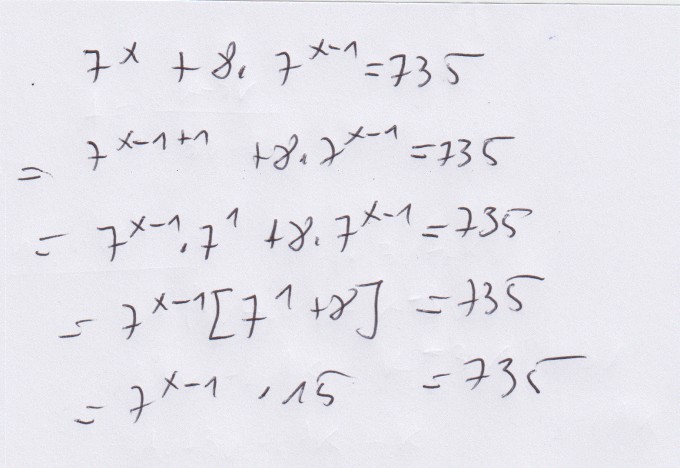 7^x + 8. 7^x-1 = 735
= 7^x-1+1 + 8. 7^x-1 = 735
= 7^x-1 . 7^1 + 8. 7^x-1 = 735
= 7^x-1 [7^1 + 8] = 735
= 7^x-1 . 15 = 735